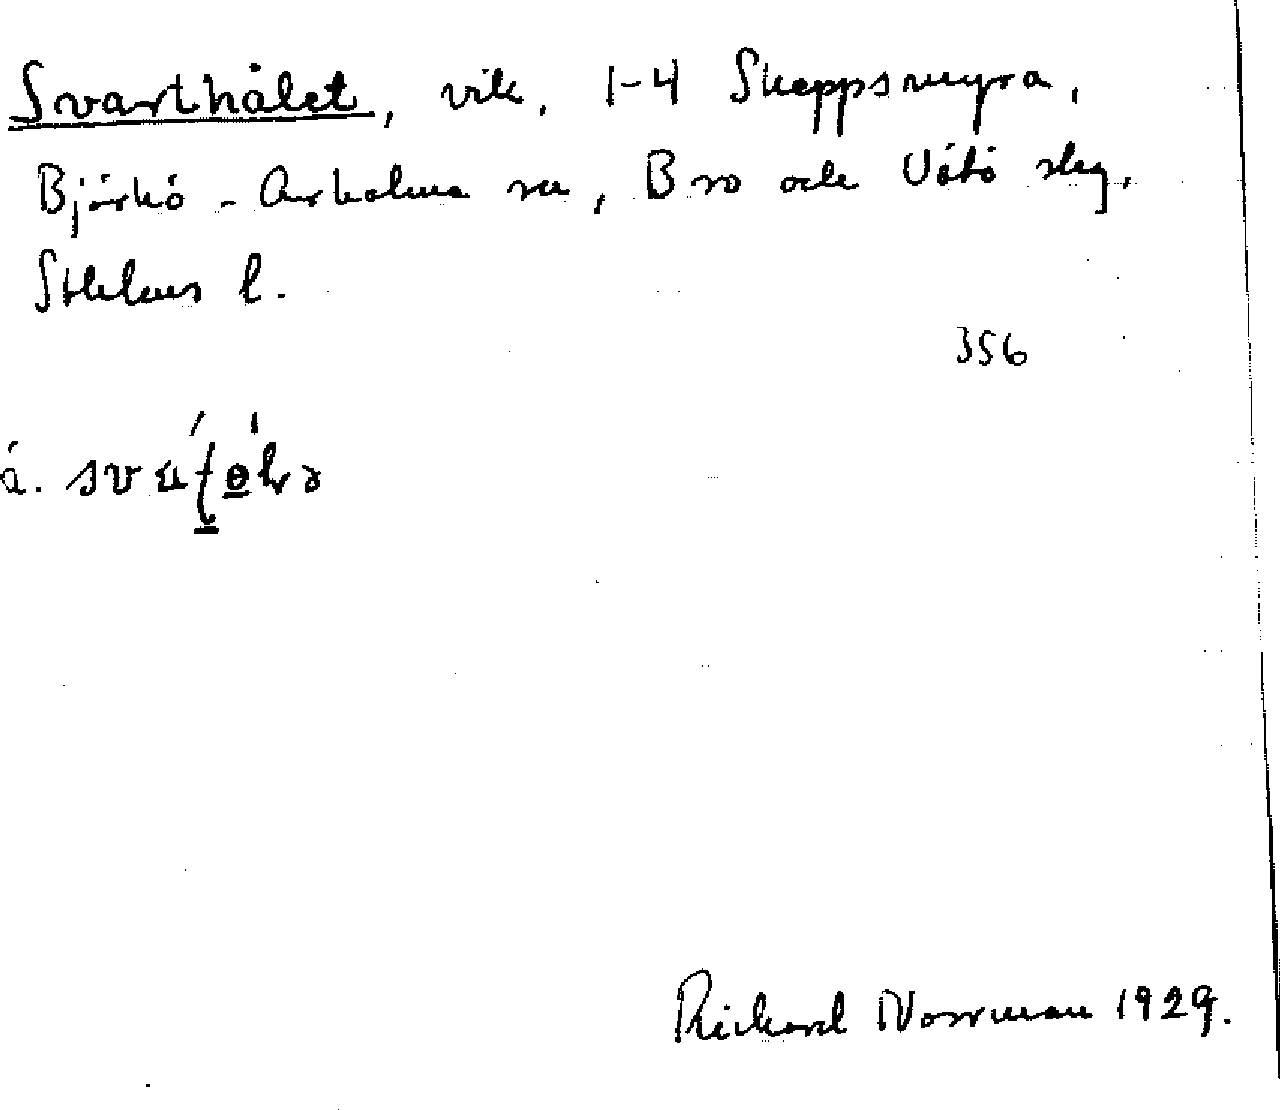 Svarthålet, vik, 1-4 Skeppsmyra,
Björkö - Arholma sn, Bro och Vätö slg,
Sthlms l.
356
å.
Richard Norrman 1929.